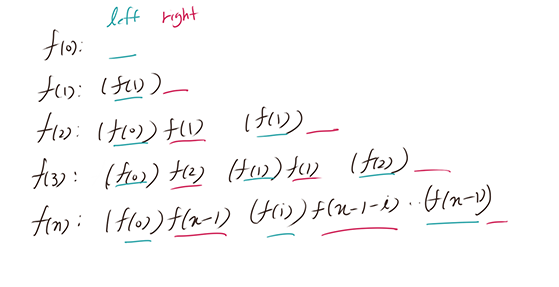 left right
f(0):
f(1): (f(1))
f(2): (f(0)) f(1) (f(1))
f(3): (f(0)) f(2) (f(1)) f(1) (f(2))
f(n): (f(0)) f(n-1) (f(i)) f(n-1-i) .. (f(n-1))